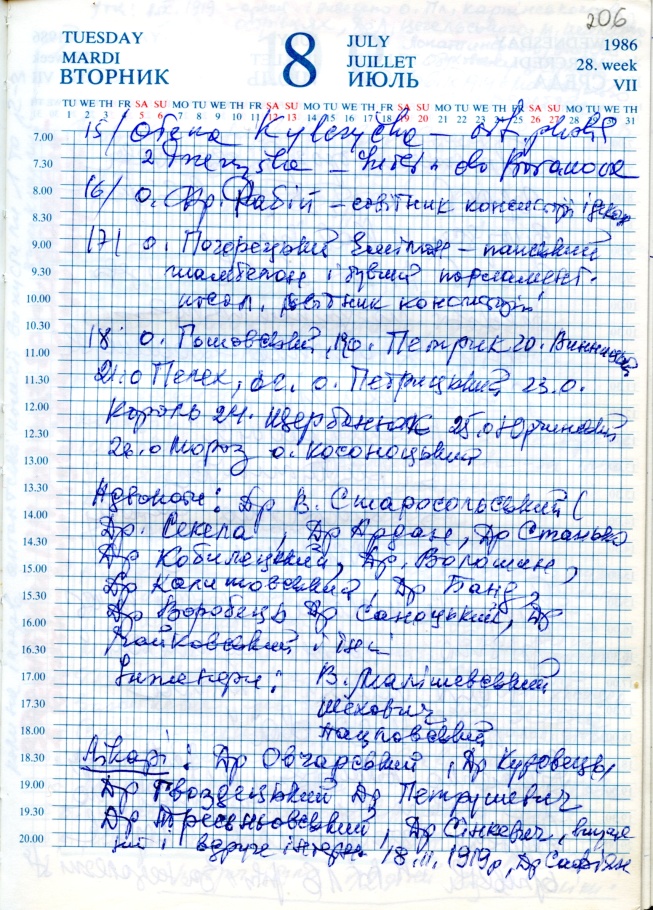 206
TUESDAY
MARDI
ВТОРНИК
8
JULY
JUILLET
ИЮЛЬ
1986
28. week
VII
TU WE TH FR SA SU MO TU WE TH FR SA SU MO TU WE TH FR SA SU MO TU WE TH FR SA SU MO TU WE TH
1 2 3 4 5 6 7 8 9 10 11 12 13 14 15 16 17 18 19 20 21 22 23 24 25 26 27 28 29 30 31
7.00 15/ Олена Кульчицка –
7.30 2
8.00 16/ о. Др. Рабій – совітник консисторії і декан
8.30
9.00 17/ о. Погорецький – папський
9.30 шамбелян і бувший парламент.
10.00 посол, совітник консисторії
10.30
11.00 18 о. 19 о. Петрик 20. Винницкий
11.30 21. о Пелех, 22. о. Петрицький 23. о.
12.00 Король 24. Щербанюк 25. о
12.30 26. о Мороз о. Косоноцький
13.00
13.30 Адвокати: Др В. Старосольський (
14.00 Др. Секела, Др Ардан, Др Станько
14.30 Др Кобилецький, Др. Волошин,
15.00 Др Калитовський, Др Банд,
15.30 Др Воробець Др Саноцький, Др
16.00 Майковський і інші
16.30
17.00 Інженери: В. Малішевський
17.30 Шехович
18.00
18.30 Лікарі: Др Овчарський, Др Куровець,
19.00 Др Гвоздецький Др Петрушевич
19.30 Др, Др Сінкевич,
20.00 і вдруге 18. 1919р, Др